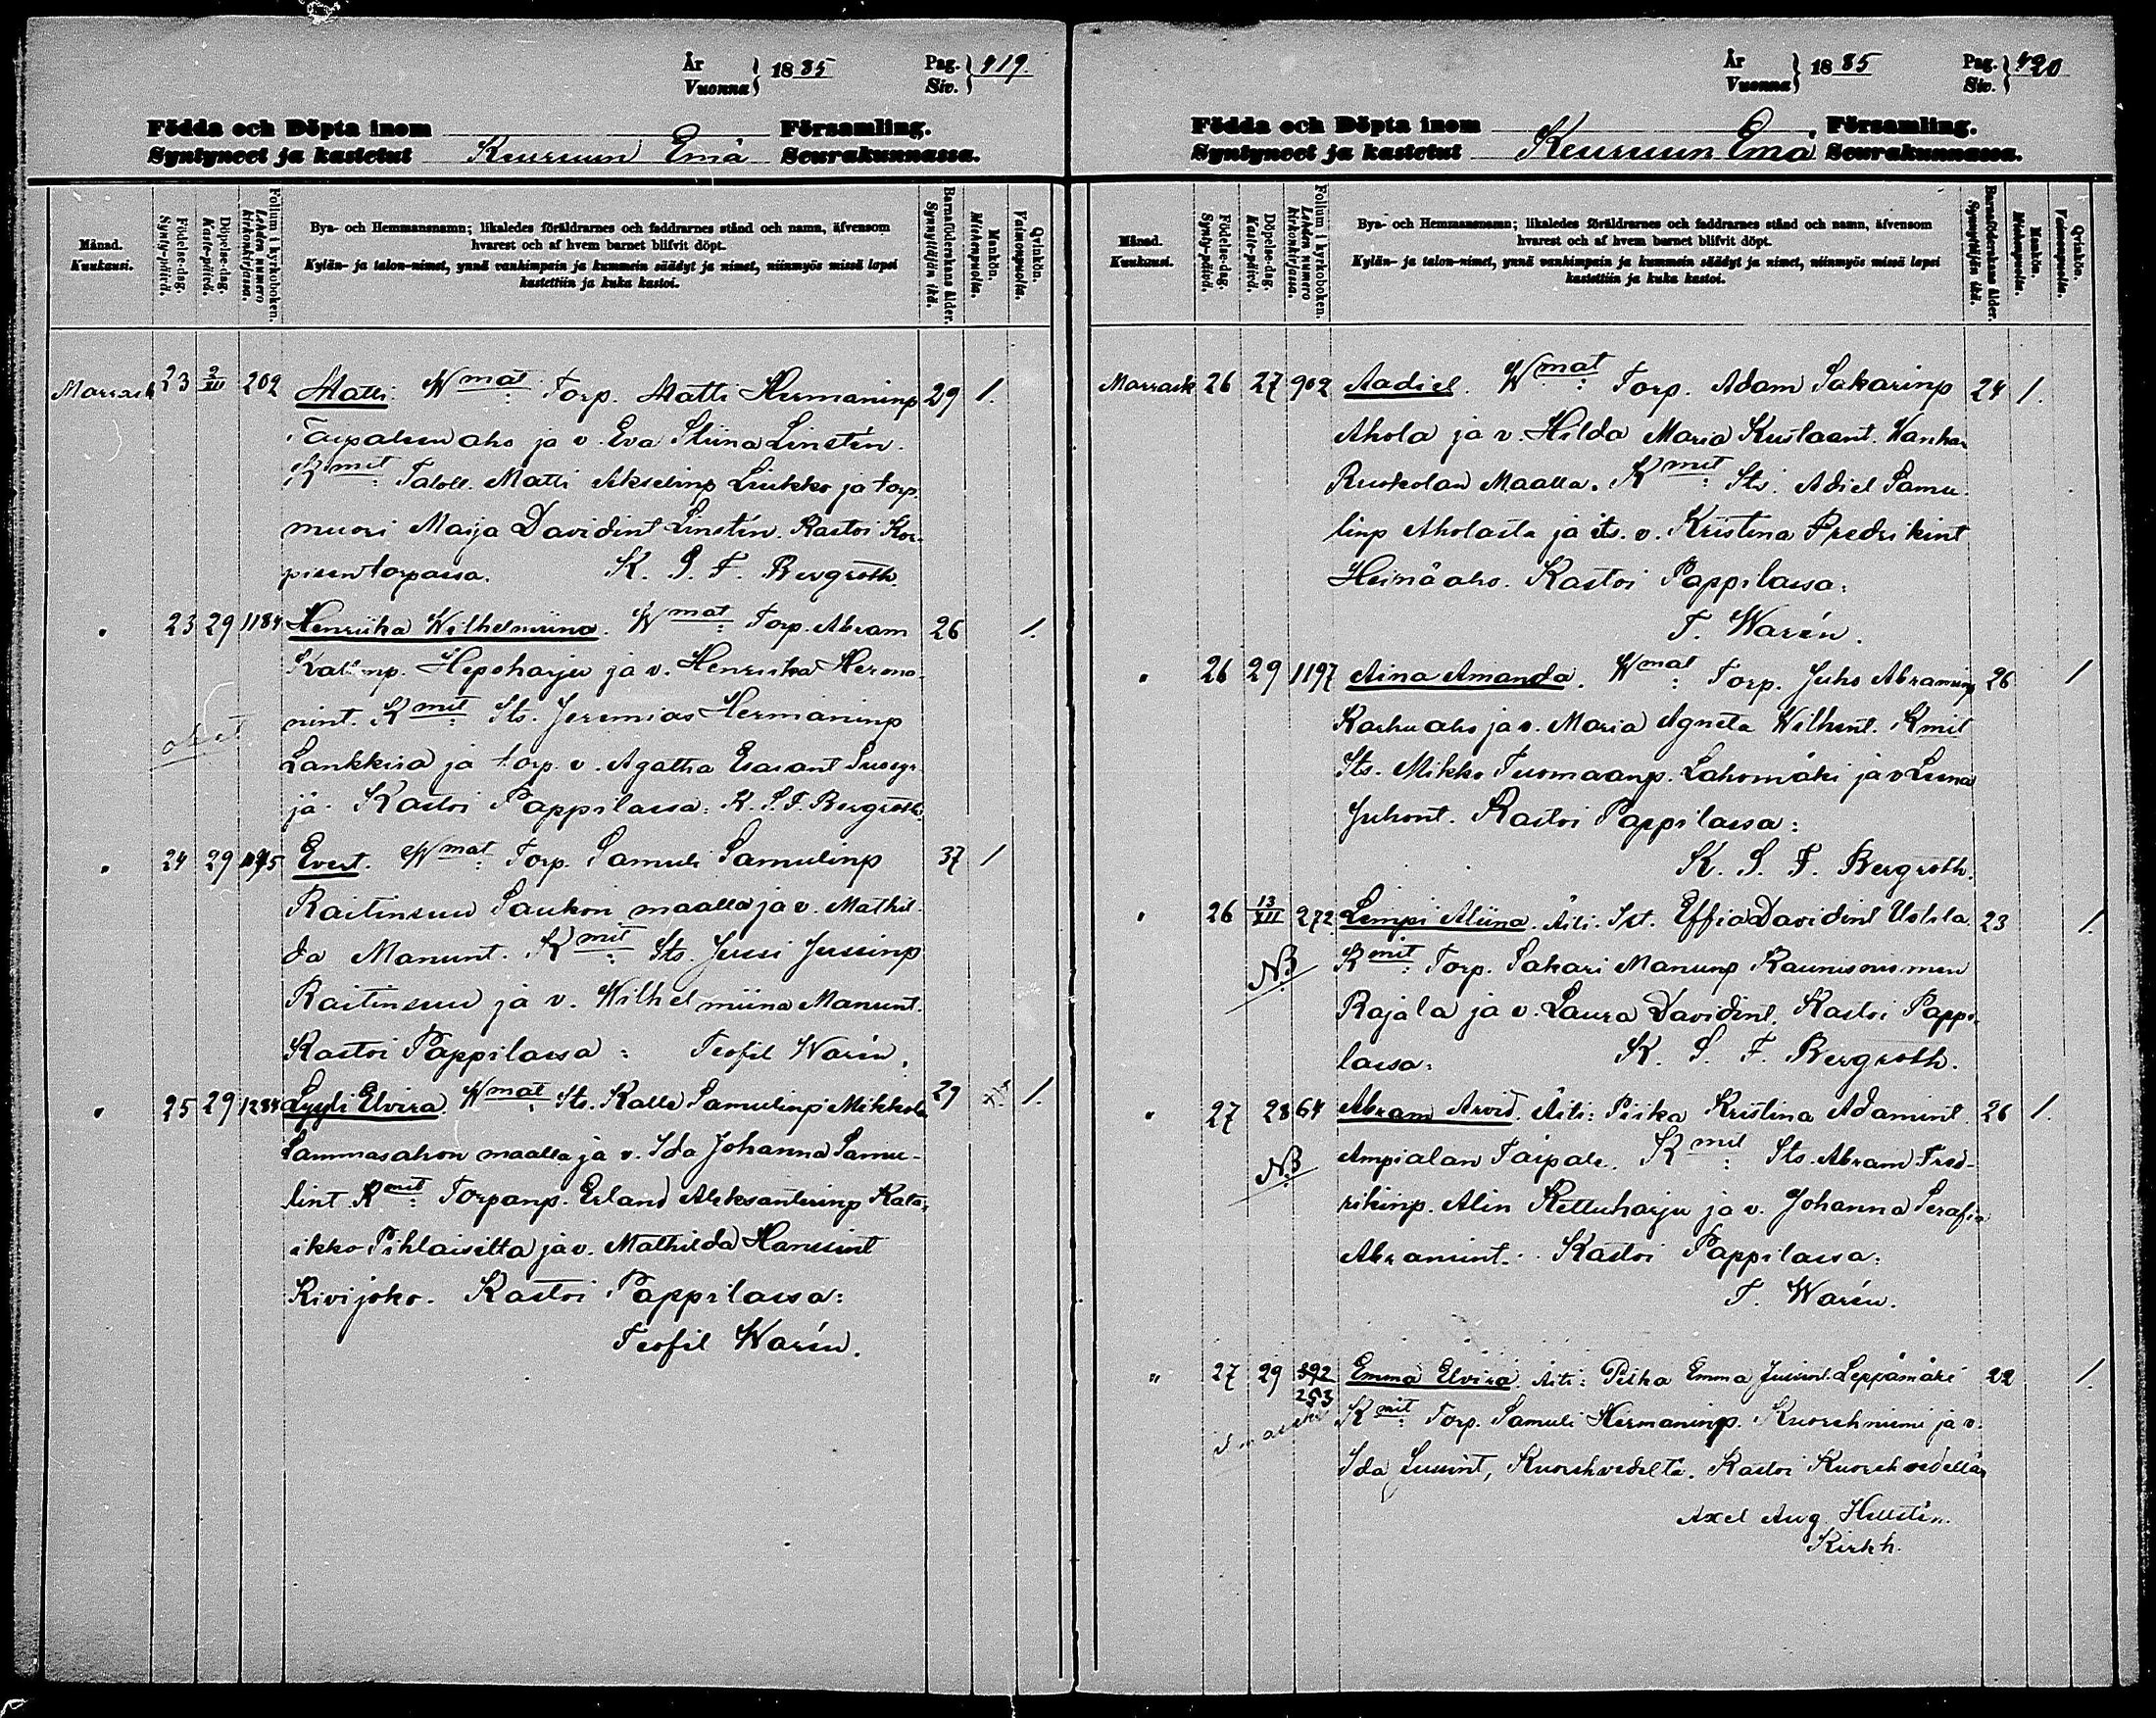 År
Vuonna } 1885 Pag.
Siv. } 419.
Födda och Döpta inom Församling.
Syntyneet ja kastetut Keuruun Emä Seurakunnassa.
Månad.
Kuukausi.
Födelse-dag.
Synty-päivä.
Döpelse-dag.
Kaste-päivä.
Folium i kyrkoboken.
Lehden numero kirkonkirjassa.
Bya- och Hemmansnamn; likaledes föräldrarnes och faddrarnes stånd och namn, äfvensom
hvarest och af hvem barnet blifvit döpt.
Kylän- ja talon-nimet, ynnä vanhimpain ja kummein säädyt ja nimet, niinmyös missä lapsi
kastettiin ja kuka kastoi.
Barnaföderskans ålder.
Synnyttäjän ikä.
Mankön.
Miehenpuolta.
Qvinkön.
Vaimonpuolta.
Marrask 23 2/XII 202 Matti. Wmat: Torp. Matti Hermaninp 29 1.
Taipaleenaho ja v. Eva Stiina Linstén.
Kmit: Taloll. Matti Akselinp Liukko ja torp.
muori Maija Davidint Linstén. Kastoi Kor-
pisentorpassa. K. S. F. Bergroth.
" 23 29 1184 Henriika Wilhelmiina. Wmat: Torp. Abram 26 1.
Kallinp. Hepoharju ja v. Henriika Herma-
nint. Kmit: Its. Jeremias Hermaninp
Lankkira ja torp. v. Agatha Esaiant
jä. Kastoi Pappilassa: K. S. F. Bergroth.
" 24 29 Evert. Wmat: Torp. Samuli Samulinp 37 1
Raitinsuu Saukon maalla ja v. Mathil-
da Manunt. Kmit: Its. Jussi Jussinp
Raitinsuu ja v. Wilhelmiina Manunt.
Kastoi Pappilassa: Teofil Warén.
" 25 29 1284 Lyyli Elvira. Wmat: Its. Kalle Samulinp Mikkola 27 1.
Lammasahon maalla ja v. Ida Johanna Samu-
lint. Kmit: Torpanp. Erland Aleksanterinp Kata-
ikko Pihlaisilta ja v. Mathilda Hanssint
Kivijoko. Kastoi Pappilassa:
Teofil Warén.
År
Vuonna } 1885 Pag.
Siv. } 420
Födda och Döpta inom Församling.
Syntyneet ja kastetut Keuruun Emä Seurakunnassa.
Månad.
Kuukausi.
Födelse-dag.
Synty-päivä.
Döpelse-dag.
Kaste-päivä.
Folium i kyrkoboken.
Lehden numero kirkonkirjassa.
Bya- och Hemmansnamn; likaledes föräldrarnes och faddrarnes stånd och namn, äfvensom
hvarest och af hvem barnet blifvit döpt.
Kylän- ja talon-nimet, ynnä vanhimpain ja kummein säädyt ja nimet, niinmyös missä lapsi
kastettiin ja kuka kastoi.
Barnaföderskans ålder.
Synnyttäjän ikä.
Mankön.
Miehenpuolta.
Qvinkön.
Vaimonpuolta.
Marrask 26 27 902 Aadiel. Wmat: Torp. Adam Sakarinp 24 1.
Ahola ja v. Hilda Maria Kustaant. Wanhan
Ruokolan Maalla. Kmit: Its. Adiel Samu-
linp Aholasta ja its. v. Kristina Fredrikint
Heinäaho. Kastoi Pappilassa:
T. Warén.
" 26 29 1197 Aina Amanda. Wmat: Torp. Juho Abraminp 26 1
Karhuaho ja v. Maria Agneta Wilhent. Kmit
Its. Mikko Tuomaanp. Lahomäki ja v Leena
Juhont. Kastoi Pappilassa:
K. S. F. Bergroth.
" 26 13/XII 272 Lempi Aliina. Äiti: Effia Davidint Ustola. 23 1.
NB Kmit: Torp. Sakari Manunp
Rajala ja v. Laura Davidint. Kastoi Pappi-
lassa: K. S. F. Bergroth.
" 27 28 64 Abram Arvid. Äiti: Piika Kristina Adamint 26 1.
NB Ampialan Taipale. Kmit: Its. Abram Fred-
rikinp. Alin Kettuharju ja v. Johanna Serafia
Abramint. Kastoi Pappilassa:
T. Warén.
" 27 29 592 Emma Elvira. Äiti: Piika Emma Jussint. Leppämäki 22 1.
253 Kmit: Torp. Samuli Hermaninp. Kuorehniemi ja v.
Ida Jussint, Kuorehvedeltä. Kastoi Kuorehvedellä
Axel Aug. Hellstén.
Kirkh.